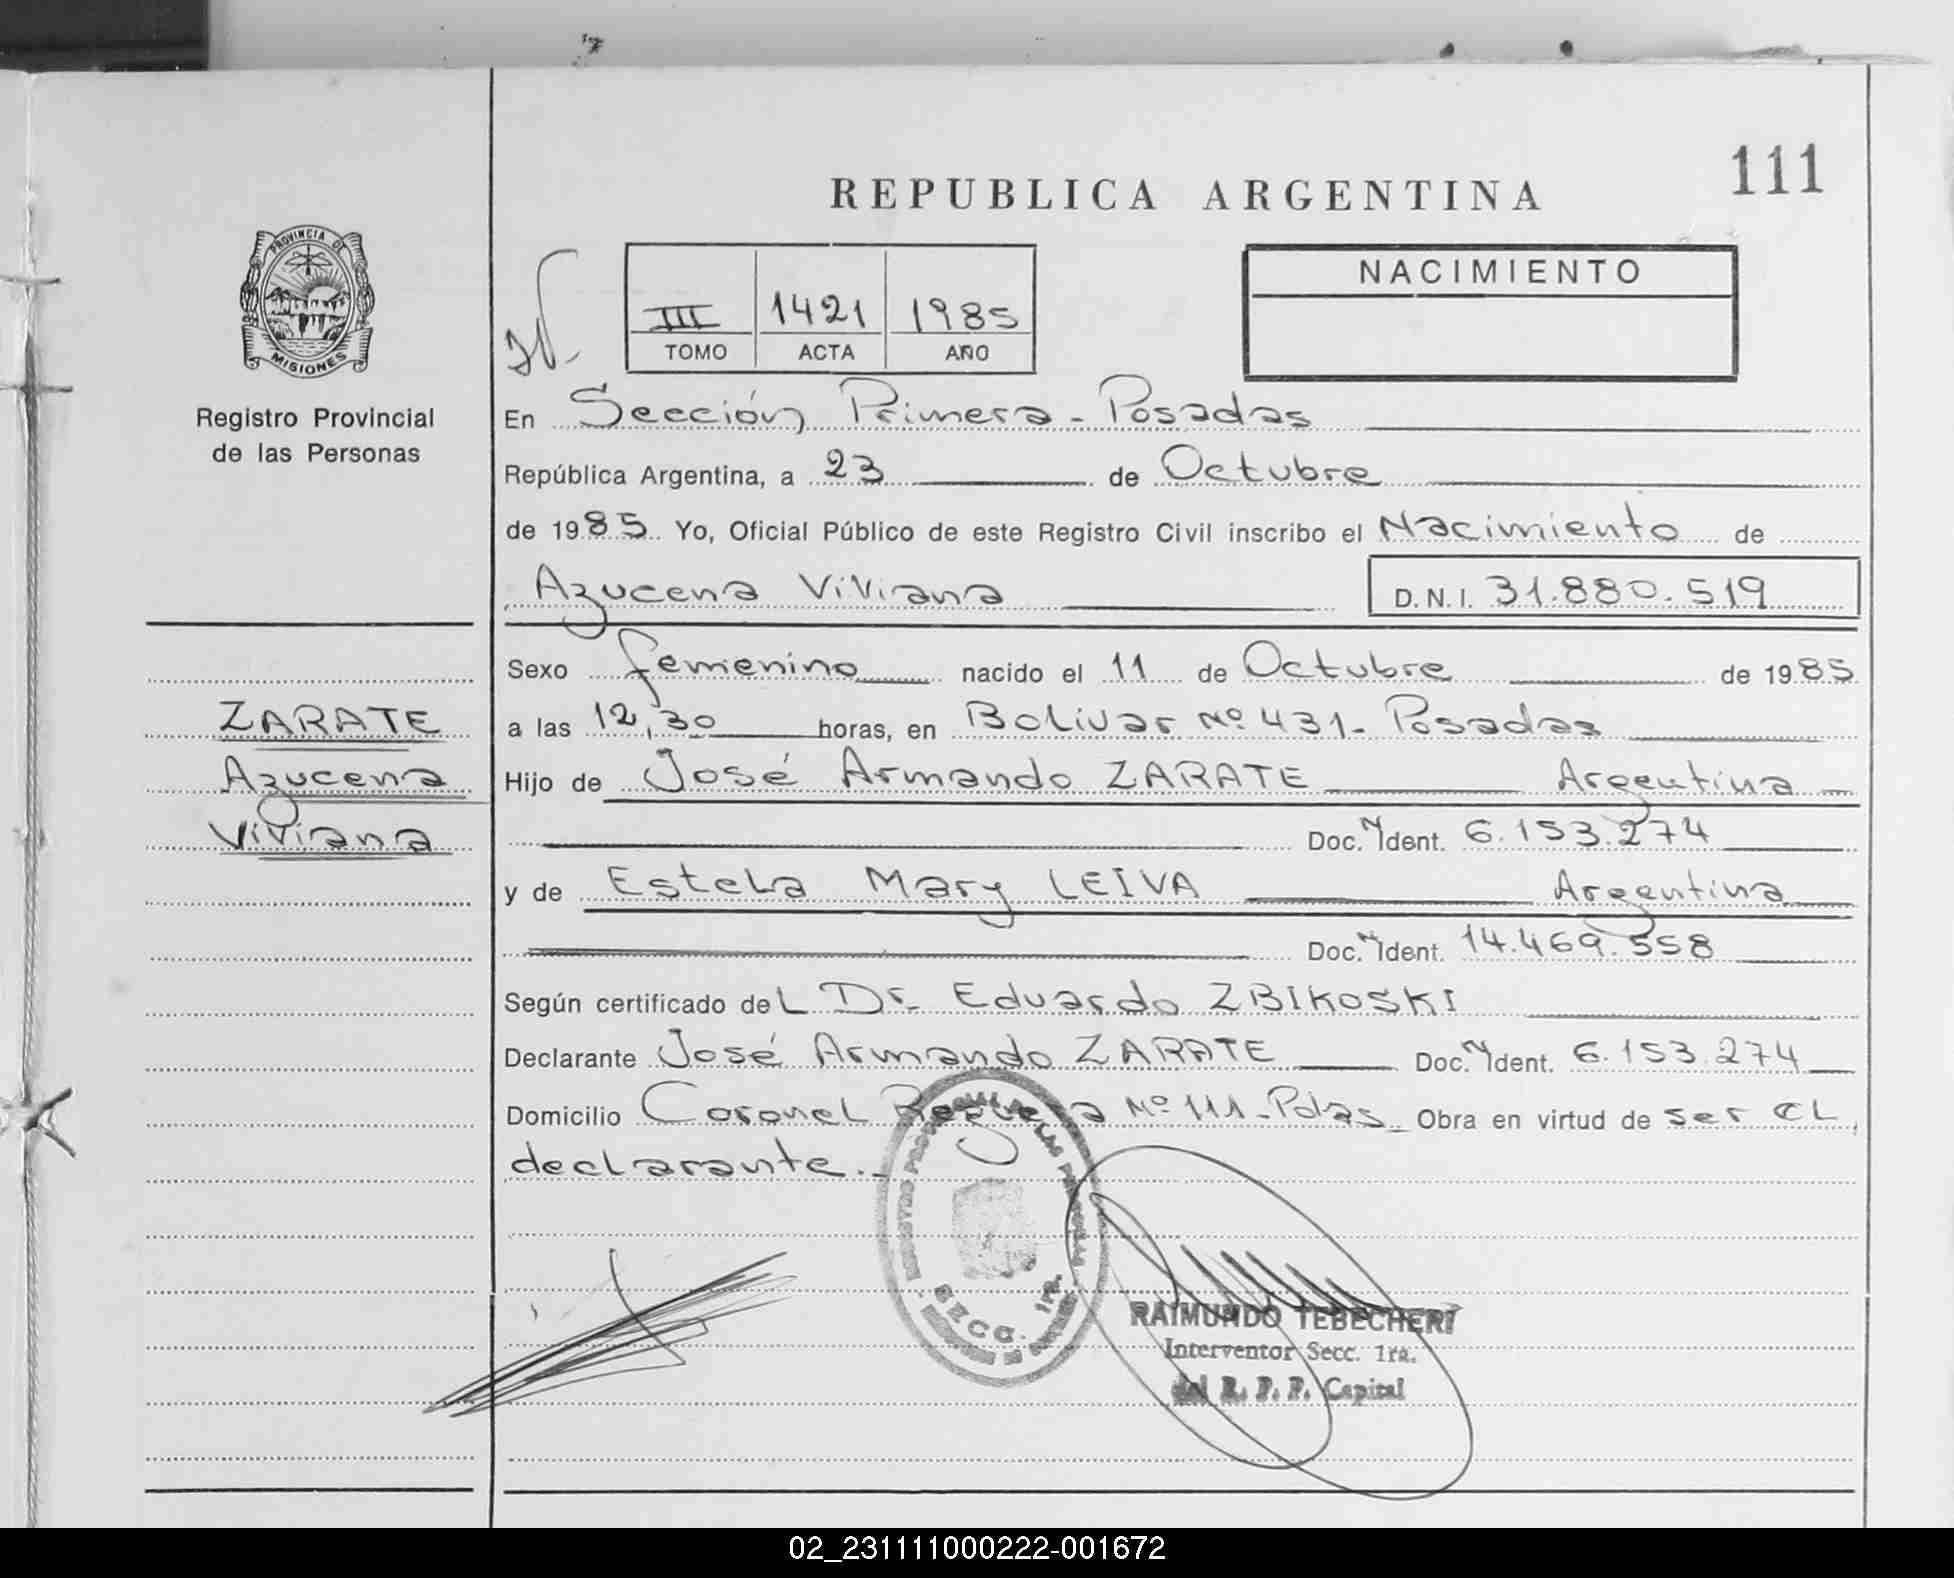 111
REPUBLICA ARGENTINA
PROVINCIA DE
MISIONES
Registro Provincial
de las Personas
III 1421 1985
TOMO ACTA AÑO
NACIMIENTO
En Sección Primera - Posadas
República Argentina, a 23 de Octubre
de 1985 Yo, Oficial Público de este Registro Civil inscribo el Nacimiento de
Azucena Viviana D.N.I. 31.880.519
Sexo femenino nacido el 11 de Octubre de 1985
ZARATE
Azucena
Viviana
a las 12,30 horas, en Bolivar Nº 431- Posadas
Hijo de José Armando ZARATE Argentina
Doc. N Ident. 6.153.274
y de Estela Mary LEIVA Argentina
Doc. N Ident. 14.469.558
Según certificado del Dr. Eduardo ZBIKOSKI
Declarante José Armando ZARATE Doc. N Ident. 6.153.274
Domicilio Coronel Reguera Nº 111-Pdas Obra en virtud de ser el
declarante.-
SECC. 1ra.
RAIMUNDO TEBECHERI
Interventor Secc. 1ra.
del R. P. P. Capital
02_231111000222-001672